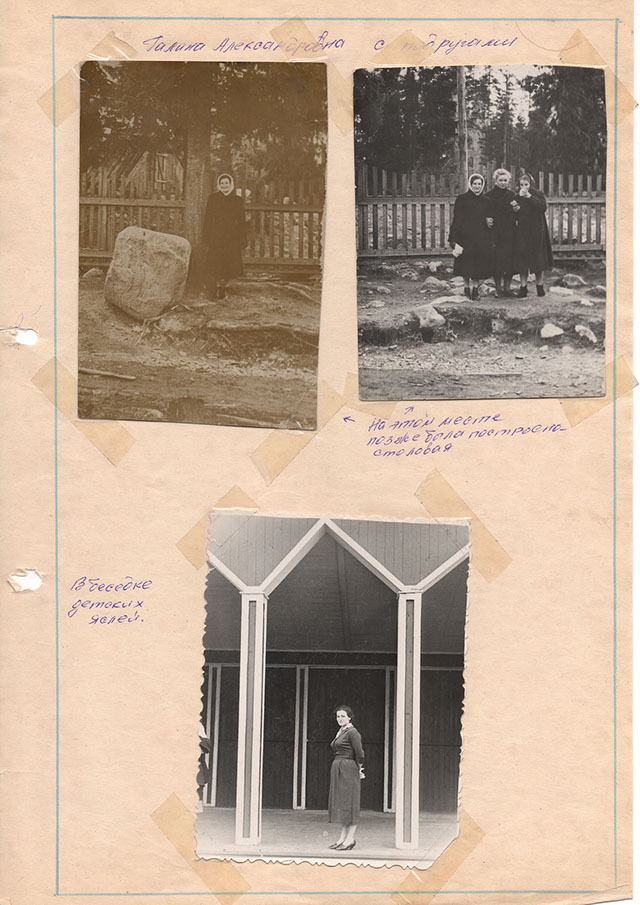 Галина Александровна с подругами
← На этом месте
позже была построено-
столовая
В беседке
детских
яслей.